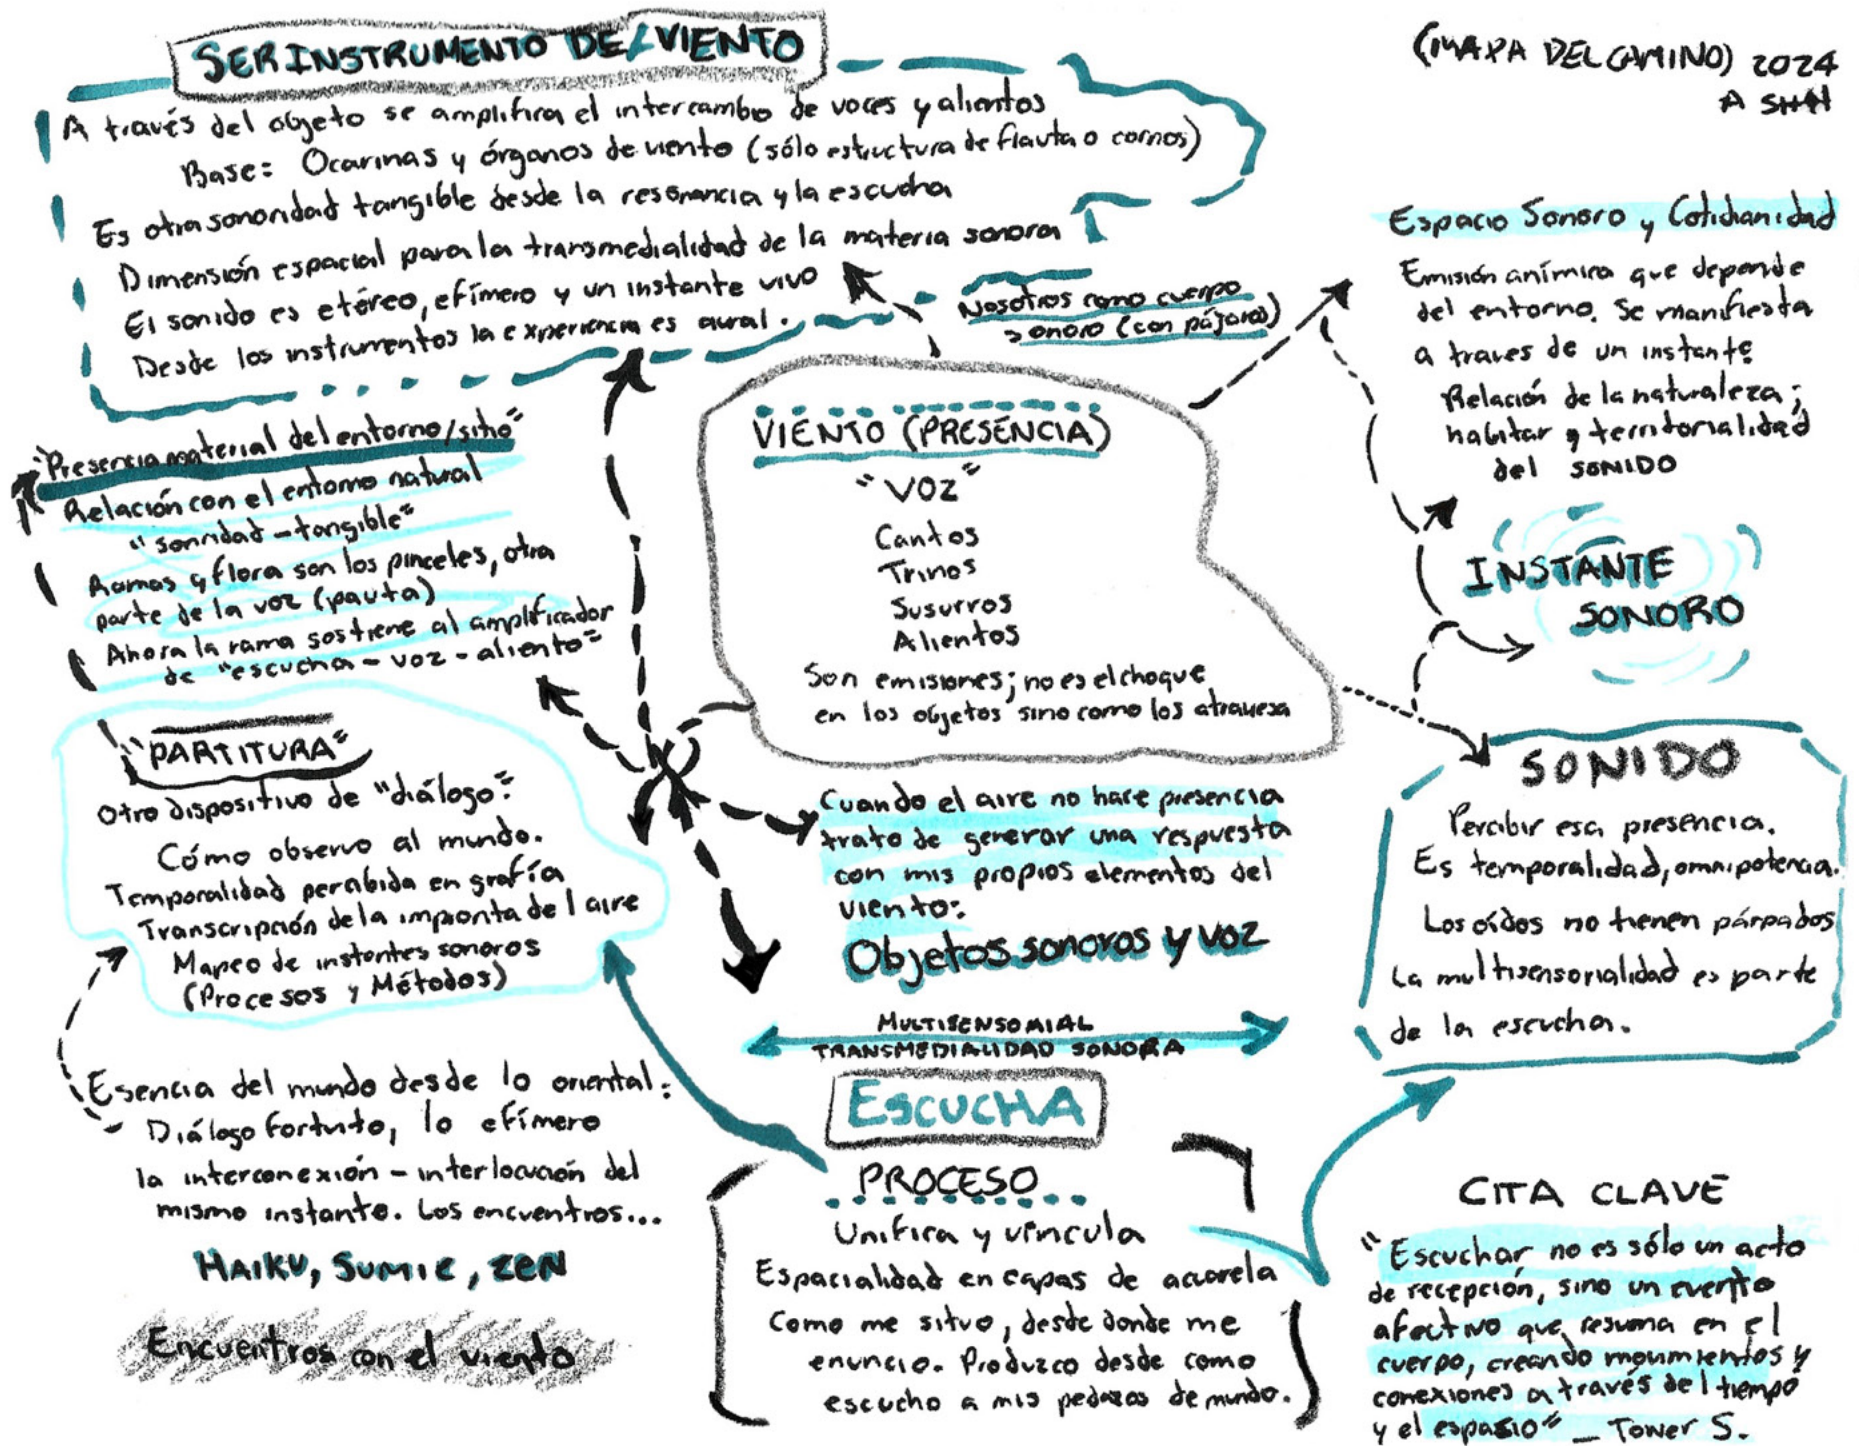 SER INSTRUMENTO DE/VIENTO
A través del objeto se amplifica el intercambio de voces y alientos
Base: Ocarinas y órganos de viento (sólo estructura de flauta o cornos)
Es otra sonoridad tangible desde la resonancia y la escucha
Dimensión espacial para la transmedialidad de la materia sonora
El sonido es etéreo, efímero y un instante vivo
Desde los instrumentos la experiencia es aural.
(MAPA DEL CAMINO) 2024
Nosotros como cuerpo
sonoro (con pájaros)
Espacio Sonoro y Cotidianidad
Emisión anímica que depende
del entorno. Se manifiesta
a traves de un instante
Relación de la naturaleza;
habitar y territorialidad
del SONIDO
"Presencia material del entorno/sitio"
Relación con el entorno natural
"sonridad-tangible"
Ramas y flora son los pinceles, otra
parte de la voz (pauta)
Ahora la rama sostiene al amplificador
de "escucha-voz-aliento"
VIENTO (PRESENCIA)
"VOZ"
Cantos
Trinos
Susurros
Alientos
Son emisiones; no es el choque
en los objetos sino como los atraviesa
INSTANTE
SONORO
"PARTITURA"
Otro dispositivo de "diálogo":
Cómo observo al mundo.
Temporalidad percibida en grafía
Transcripción de la impronta del aire
Mapeo de instantes sonoros
(Procesos y Métodos)
Cuando el aire no hace presencia
trato de generar una respuesta
con mis propios elementos del
viento:
Objetos sonoros y voz
SONIDO
Percibir esa presencia.
Es temporalidad, omnipotencia.
Los oídos no tienen párpados
La multisensorialidad es parte
de la escucha.
MULTISENSORIAL
TRANSMEDIALIDAD SONORA
Esencia del mundo desde lo oriental:
Diálogo fortuito, lo efímero
la interconexión - interlocución del
mismo instante. Los encuentros...
HAIKU, SUMIE, ZEN
Encuentros con el viento
ESCUCHA
PROCESO
Unifica y vincula
Espacialidad en capas de acuarela
Como me sitúo, desde donde me
enuncio. Produzco desde como
escucho a mis pedazos de mundo.
CITA CLAVE
"Escuchar no es sólo un acto
de recepción, sino un evento
afectivo que resuena en el
cuerpo, creando movimientos y
conexiones a través del tiempo
y el espasio" _ Tower S.